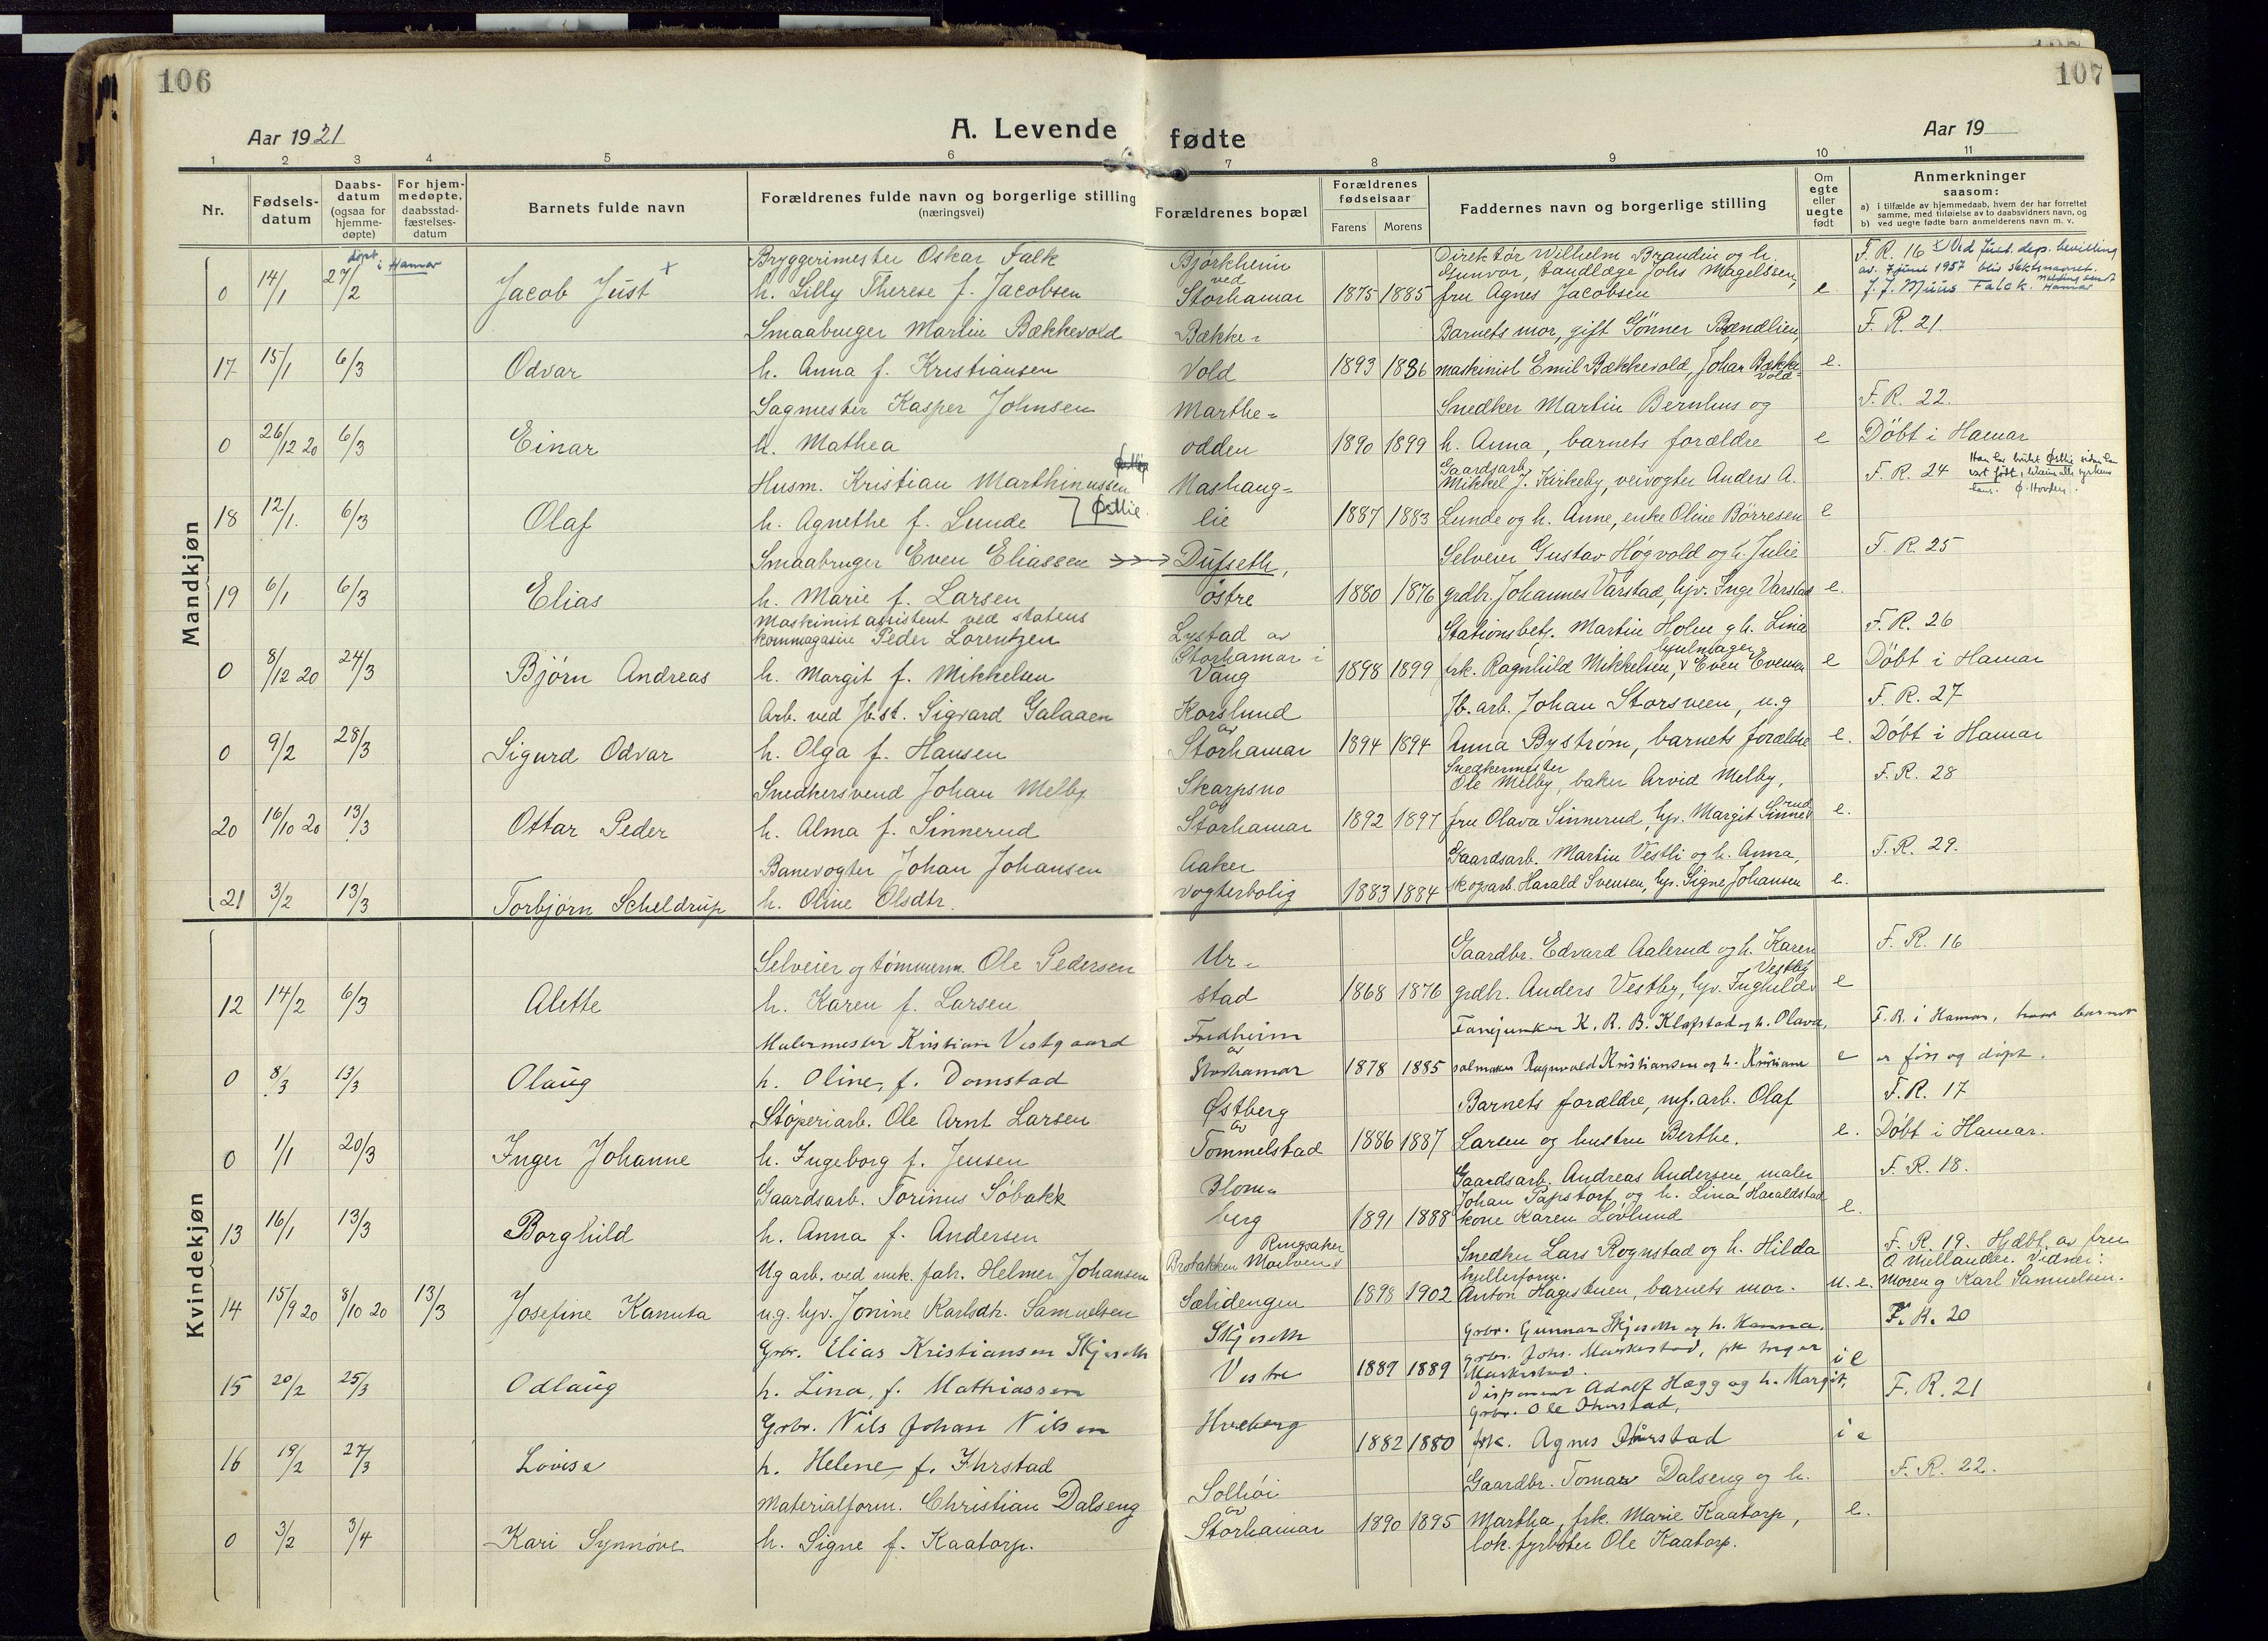 106
107
Aar 1921
A. Levende
fødte
Aar 19
1 2 3 4 5 6 7 8 9 10 11
Nr.
Fødsels-datum
Daabs-datum (ogsaa for hjemme-døpte)
For hjem-medøpte, daabsstad-fæstelses-datum
Barnets fulde navn
Forældrenes fulde navn og borgerlige stilling (næringsvei)
Forældrenes bopæl
Forældrenes fødselsaar
Farens Morens
Faddernes navn og borgerlige stilling
Om egte eller uegte født
Anmerkninger saasom:
a) i tilfælde av hjemmedaab, hvem der har forrettet samme, med tilføielse av to daabsvidners navn, og
b) ved uegte fødte barn anmelderens navn m. v.
Mandkjøn
døpt i Hamar
Bryggerimester Oskar Falk Bjørkheim Direktør Wilhelm Brandin og h. F. R. 16 x Ved just. dep. bevilling
0 14/1 27/2 Jacob Just x h. Lilly Therese f. Jacobsen ved Storhamar 1875 1885 Gunvor, tandlæge Johs Magelssen, fru Agnes Jacobsen e av 7 juni 1957 blir slektsnavnet J. J. Müüs Falck. Hamar
Smaabruger Martin Bækkevold Bække= Barnets mor, gift Gønner Brendlien, F. R. 21
17 15/1 6/3 Odvar h. Anna f. Kristiansen Vold 1893 1886 maskinist Emil Bækkevold, Johan Bækkevold e.
Sagmester Kasper Johnsen Marthe= Snedker Martin Bernhus og F. R. 22.
0 26/12 20 6/3 Einar h. Mathea odden 1890 1899 h. Anna, barnets forældre e Døbt i Hamar
Husm. Kristian Marthinussen Nashaug= Gaardsarb. Mikkel J. Kirkeby, veivogter Anders A. F. R. 24 Han har brukt Østlie siden han vart født, Ø. Hovden.
18 12/1. 6/3 Olaf h. Agnethe f. Lunde ] Østlie. lie 1887 1883 Lunde og h. Anne, enke Oline Børresen e
Smaabruger Even Eliassen Dufseth, Selveier Gustav Høgvold og h. Julie F. R. 25
19 6/1 6/3 Elias h. Marie f. Larsen østre 1880 1876 grdbr. Johannes Varstad, hjv. Inge Varstad e.
Maskinistassistent ved statens
kornmagasin Peder Lorentzen Lystad av Stationsbetj. Martin Holm g h. Lina F. R. 26
0 8/12 20 24/3 Bjørn Andreas h. Margit f. Mikkelsen Storhamar i Vang 1898 1899 frk. Ragnhild Mikkelsen, hjulmager Even Evensen e Døbt i Hamar
Arb. ved Jb.st. Sigvard Galaaen Korslund Jb. arb. Johan Storsveen, u.g F. R. 27
0 9/2 28/3 Sigurd Odvar h. Olga f. Hansen av Storhamar 1894 1894 Anna Bystrøm, barnets forældre e. Døbt i Hamar
Snedkersvend Johan Melby Skarpsno Snedkermester Ole Melby, baker Arvid Melby, F. R. 28
20 16/10 20 13/3 Ottar Peder h. Alma f. Sinnerud av Storhamar 1892 1897 fru Olava Sinnerud, hjv. Margit Sinnerud e.
Banevogter Johan Johansen Aaker Gaardsarb. Martin Vestli og h. Anna, F. R. 29.
21 3/2 13/3 Torbjørn Scheldrup h. Oline Olsdtr. vogterbolig 1883 1884 skogsarb. Harald Svensen, hjv. Signe Johansen e.
Kvindekjøn
Selveier og tømmerm. Ole Pedersen Ur= Gaardbr. Edvard Aalerud og h. Karen F. R. 16
12 14/2 6/3 Alette h. Karen f. Larsen stad 1868 1876 grdbr. Anders Vestby, hjv. Inghild Vestby e
Malermester Kristian Vestgaard Fredheim Fanejunker K. R. B. Klæpstad og h. Olava, F. R. i Hamar, hvor barnet
0 8/3 13/3 Olaug h. Oline, f. Domstad av Storhamar 1878 1885 salmaker Ragnvald Kristiansen og h. Kristiane e er født og døpt.
Støperiarb. Ole Arnt Larsen Østberg Barnets forældre, mf. arb. Olaf F. R. 17
0 1/1 20/3 Inger Johanne h. Ingeborg f. Jensen av Tommelstad 1886 1887 Larsen og hustru Berthe. e. Døbt i Hamar.
Gaardsarb. Torinus Søbakk Blom= Gaardsarb. Andreas Andersen, maler F. R. 18.
13 16/1 13/3 Borghild h. Anna f. Andersen berg 1891 1888 Johan Papstorf og h. Lina Haraldstad kone Karen Løvlund e.
Ug arb. ved mek. fabr. Helmer Johansen Brobakken Moelven Ringsaker Snedker Lars Rognstad og h. Hilda F. R. 19. Hjdbt. av fru
14 15/9 20 8/10 20 13/3 Josefine Kanuta u.g. hjv. Jonine Karlsdtr. Samuelsen Sælidengen 1898 1902 Anton Hagestuen, barnets mor. u. e. A Mellander. Vidner: moren g Karl Samuelsen.
Grbr. Elias Kristiansen Skjeseth Skjeseth Grbr. Gunnar Skjeseth og h. Hanna. F. R. 20
15 20/2 25/3 Odlaug h. Lina, f. Mathiassen Vestre 1889 1889 grbr. Johs. i e
Grbr. Nils Johan Nilsen Hveberg Disponent Adolf Hægg og h. Margit, grbr. Ole F. R. 21
16 19/2 27/3 Lovise h. Helene, f. Ihrstad 1882 1880 frk. Agnes i e
Materialform. Christian Dalseng Solhøi Gaardbr. Tomas Dalseng og h. F. R. 22.
0 3/2 3/4 Kari Synnøve h. Signe f. Kaatorp. av Storhamar 1890 1895 Martha, frk. Marie Kaatorp, e.
lok. fyrbøter Ole Kaatorp.